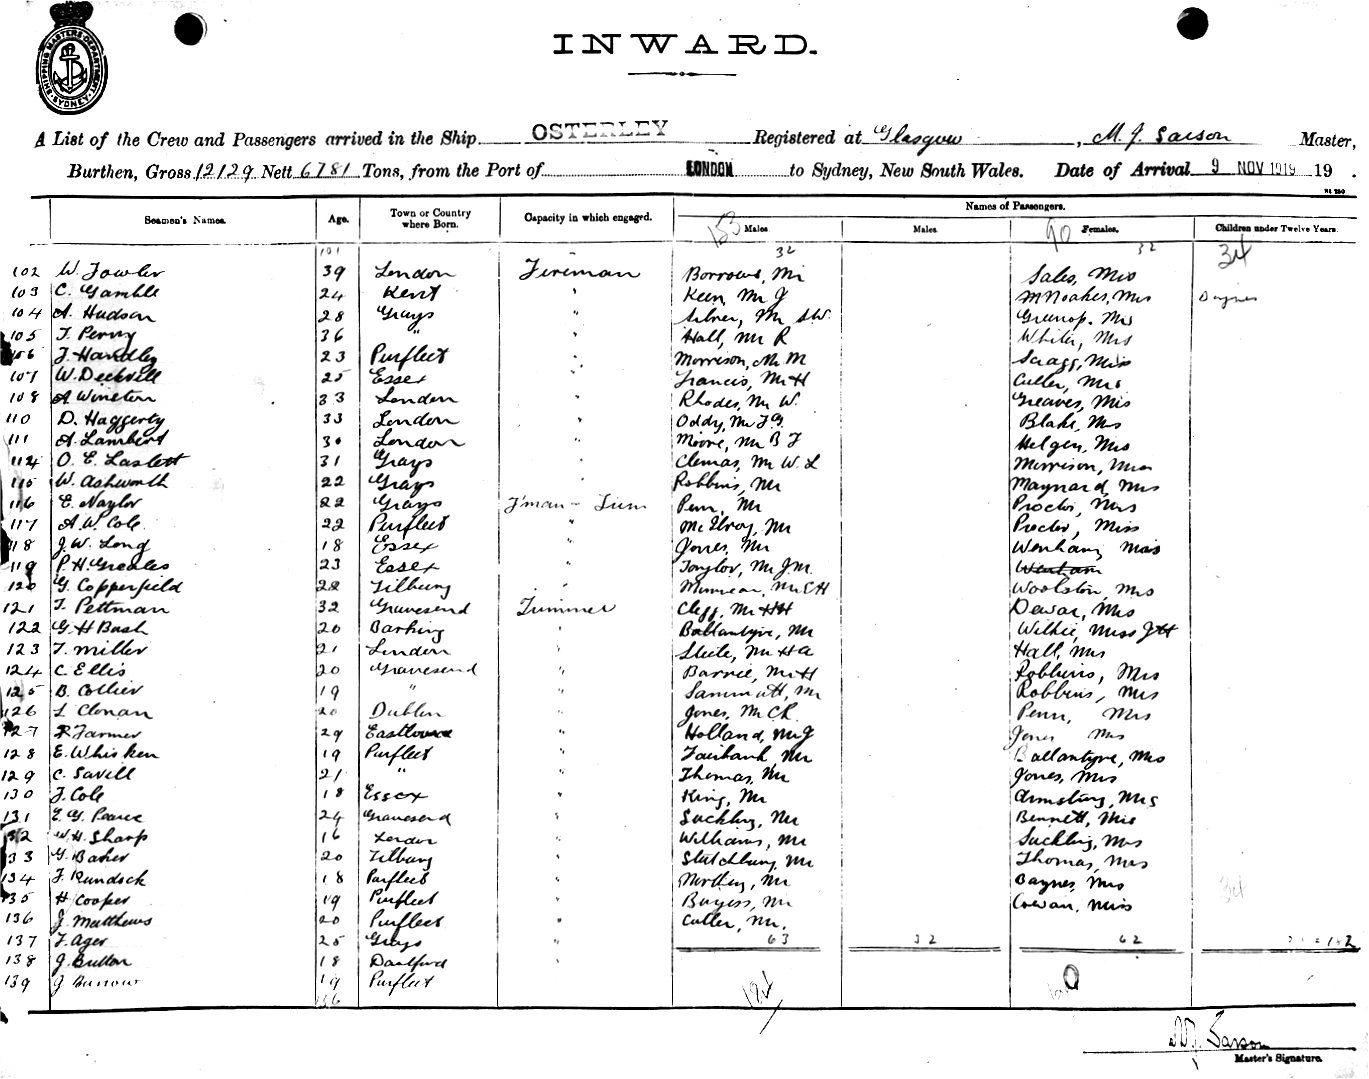 SHIPPING MASTERS DEPARTMENT SYDNEY
INWARD.
A List of the Crew and Passengers arrived in the Ship OSTERLEY Registered at Glasgow, M. J. Sarson Master,
Burthen, Gross 12129 Nett 6781 Tons, from the Port of LONDON to Sydney, New South Wales. Date of Arrival 9 NOV 1919 19 .
Seamen's Names. Age. Town or Country where Born. Capacity in which engaged. Names of Passengers.
153 Males Males. 90 Females. Children under Twelve Years.
101 32 32 34
102 W. Fowler 39 London Fireman Borrows, Mr Sales, Mrs
103 C. Gamble 24 Kent " Keen, Mr J McNoakes, Mrs
104 A. Hudson 28 Grays " Silver, Mr S.W. Greenop. Mrs
105 T. Penny 36 " " Hall, Mr R White, Mrs
106 J. Handley 23 Purfleet " Morrison, Mr M Scragg, Miss
107 W. 25 Essex " Francis, Mr H Cutler, Mrs
108 A Winston 33 London Rhodes, Mr W. Greaves, Mrs
110 D. Haggerty 33 London " Oddy, Mr F G. Blake, Mrs
111 A. Lambert 30 London " Moore, Mr B F Helgen, Mrs
114 O. E. Laslett 31 Grays " Clemas, Mr W. L Morrison, Mrs
115 W. Ashworth 22 Grays " Robbins, Mr Maynard, Mrs
116 E. Naylor 22 Grays F'man - Trim Penn, Mr Proctor, Mrs
117 A. W. Cole. 22 Purfleet " McIlroy, Mr Proctor, Miss
118 J. W. Long 18 Essex " Jones, Mr Wenham, Miss
119 P. H. Greales 23 Essex " Taylor, Mr J M. Wenham
120 G. Copperfield 22 Tilbury " Mr C H Woolston, Mrs
121 T. Pettman 32 Gravesend Trimmer Clegg, Mr H H Dewar, Mrs
122 G. H Bash 20 Barking " Ballantyre, Mr Wilkie, Miss J H
123 T. Miller 21 London " Steele, Mr H A Hall, Mrs
124 C. Ellis 20 Gravesend " Barrie, Mr H Robbins, Mrs
125 B. Collier 19 " " Sammutt, Mr Robbins, Mrs
126 L Clonan 20 Dublin " Jones, Mr C R. Penn, Mrs
127 R Farmer 29 Eastbourne " Holland, Mr J Jones Mrs
128 E. Whisken 19 Purfleet " Fairbank Mr Ballantyre, Mrs
129 C. Savill 21 " " Thomas, Mr Jones, Mrs
130 J. Cole 18 Essex " King, Mr Armstrong, Mrs
131 E. G. Pearce 24 Gravesend " Suckling, Mr Bennett, Mrs
132 W. H. Sharp 16 London " Williams, Mr Suckling, Mrs
133 G. Baker 20 Tilbury " Stutchbury, Mr Thomas, Mrs
134 F. Rundock 18 Purfleet " Mr Baynes, Mrs
135 H Cooper 19 Purfleet " Burgess, Mr Cowan, Miss 34
136 J. Matthews 20 Purfleet " Cutler, Mr.
137 F. Ager 25 Grays " 63 32 62
138 J. Button 18 Dartford "
139 J Burrow 19 Purfleet
136
M.J. Sarson
Master's Signature.